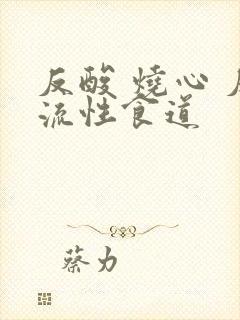 反酸 燒心
流性食道
蔡力